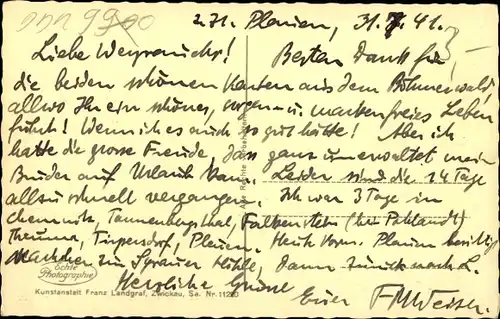 z.Zt. Plauen, 31.7.41.
Liebe Weyrauchs! Besten Dank für
die beiden schönen Karten aus dem Böhmerwald,
allwo Ihr ein schönes, sorgen- u. markenfreies Leben
führt! Wenn ich es auch so gut hätte! Aber ich
hatte die grosse Freude, dass ganz unerwartet mein
Bruder auf Urlaub kam. Leider sind die 14 Tage
allzu schnell vergangen. Ich war 3 Tage in
Chemnitz, Tannenbergsthal, Falkenstein (bei
Theuma, Tirpersdorf, Plauen. Heute Vorm. Plauen besichtigt
Nachher zur Syrauer Höhle, dann zurück nach L.
Herzliche Grüsse
Euer
Echte
Photographie
Kunstanstalt Franz Landgraf, Zwickau, Sa. Nr. 11200